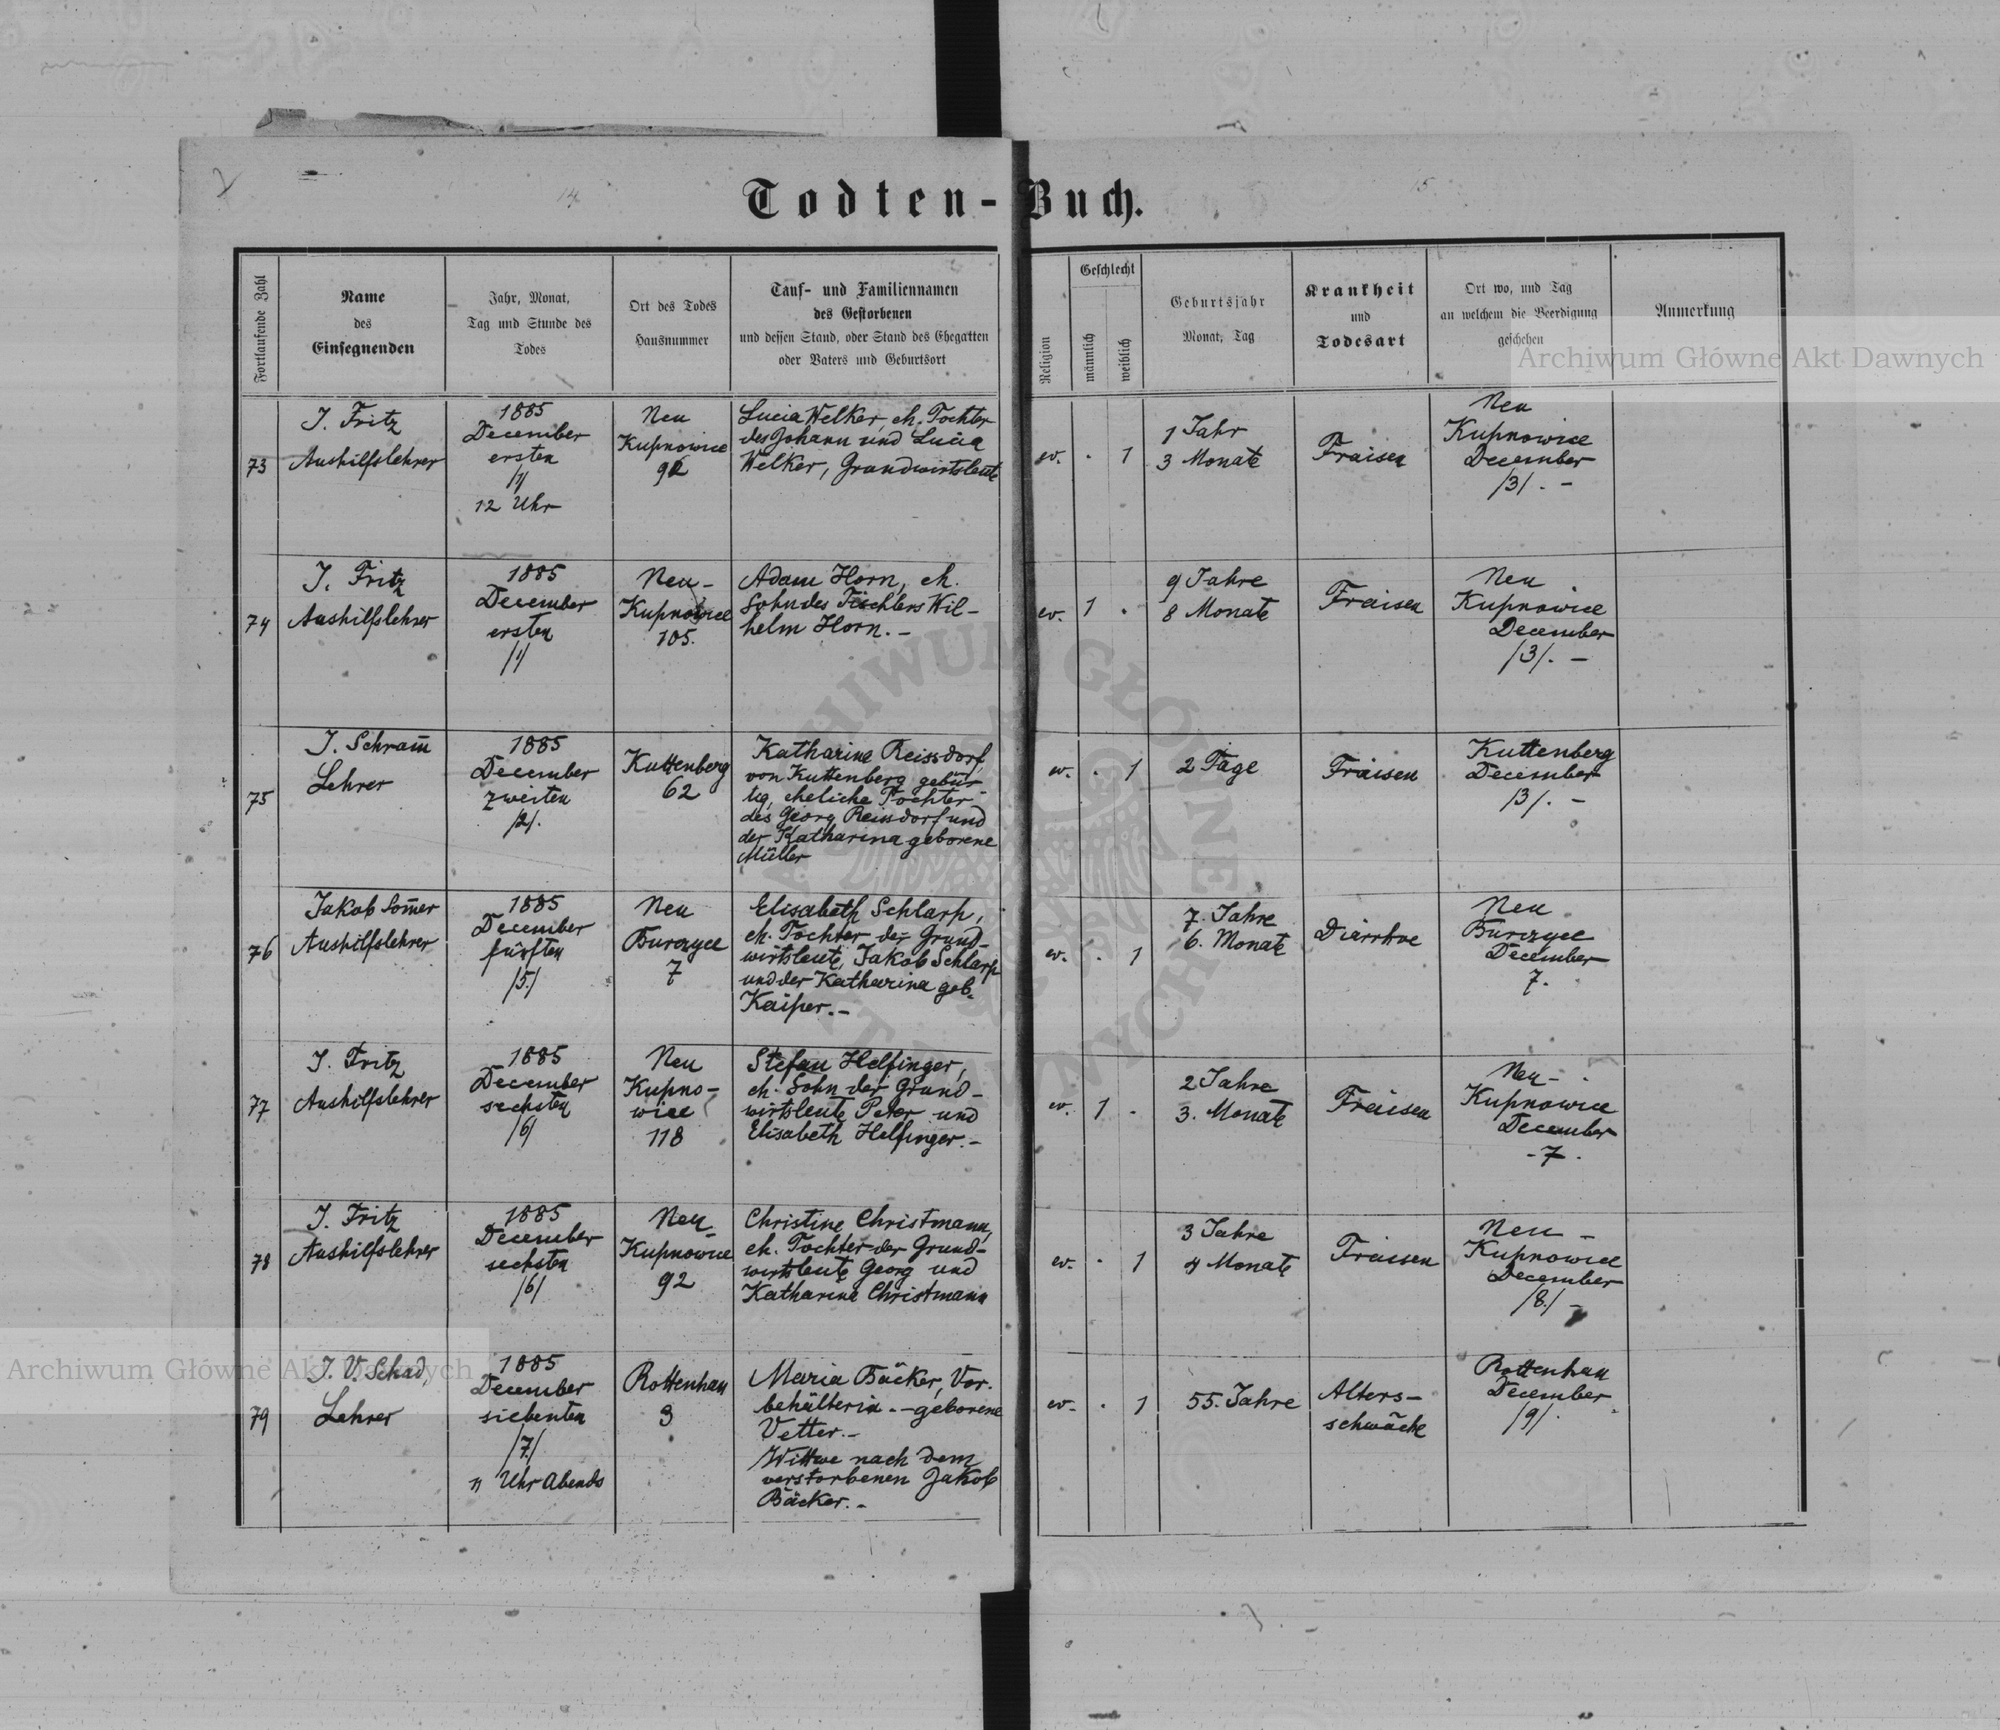 Todten-Buch.
14
15
Fortlaufende Zahl
Name
des
Einsegnenden
Jahr, Monat,
Tag und Stunde des
Todes
Ort des Todes
Hausnummer
Tauf- und Familiennamen
des Gestorbenen
und dessen Stand, oder Stand des Ehegatten
oder Vaters und Geburtsort
Religion
Geschlecht
männlich
weiblich
Geburtsjahr
Monat, Tag
Krankheit
und
Todesart
Ort wo, und Tag
an welchem die Beerdigung
geschehen
Anmerkung
Archiwum Główne Akt Dawnych
73
J. Fritz
Aushilfslehrer
1885
December
ersten
/1/
12 Uhr
Neu
Kupnowice
92
Lucia Welker, eh. Tochter
des Johann und Lucia
Welker, Grundwirtsleute
ev. . 1
1 Jahr
3 Monate
Fraisen
Neu
Kupnowice
December
/3/. -
74
J. Fritz
Aushilfslehrer
1885
December
ersten
/1/
Neu-
Kupnowice
105.
Adam Horn, eh.
Sohn des Tischlers Wil-
helm Horn. -
ev. 1 .
9 Jahre
8 Monate
Fraisen
Neu
Kupnowice
December
/3/. -
75
J. Schram̄
Lehrer
1885
December
zweiten
/2/.
Kuttenberg
62
Katharina Reissdorf,
von Kuttenberg gebür-
tig, eheliche Tochter
des Georg Reissdorf und
der Katharina geborene
Müller
ev. . 1
2 Tage
Fraisen
Kuttenberg
December
/3/. -
76
Jakob Som̄er
Aushilfslehrer
1885
December
fünften
/5./
Neu
Burczyce
7
Elisabeth Schlarp,
eh. Tochter der Grund-
wirtsleute, Jakob Schlarp
und der Katharina geb.
Kaiper. -
ev. . 1
7. Jahre
6. Monate
Diarrhoe
Neu
Burczyce
December
7.
77
J. Fritz
Aushilfslehrer
1885
December
sechsten
/6/
Neu
Kupno-
wice
118
Stefan Helfinger,
eh. Sohn der Grund-
wirtsleute Peter und
Elisabeth Helfinger. -
ev. 1 .
2 Jahre
3. Monate
Fraisen
Neu-
Kupnowice
December
- 7.
78
J. Fritz
Aushilfslehrer
1885
December
sechsten
/6/
Neu
Kupnowice
92
Christine Christmann,
eh. Tochter der Grund-
wirtsleute Georg und
Katharina Christmann
ev. . 1
3 Jahre
4 Monate
Fraisen
Neu -
Kupnowice
December
/8./ -
79
J. V. Schad,
Lehrer
1885
December
siebenten
/7./
11 Uhr Abends
Rottenhan
3
Maria Bäcker, Vor.
behälterin. - geborene
Vetter. -
Wittwe nach dem
verstorbenen Jakob
Bäcker. -
ev. . 1
55. Jahre
Alters-
schwäche
Rottenhan
December
/9/.
Archiwum Główne Akt Dawnych
ARCHIWUM GŁÓWNE AKT DAWNYCH